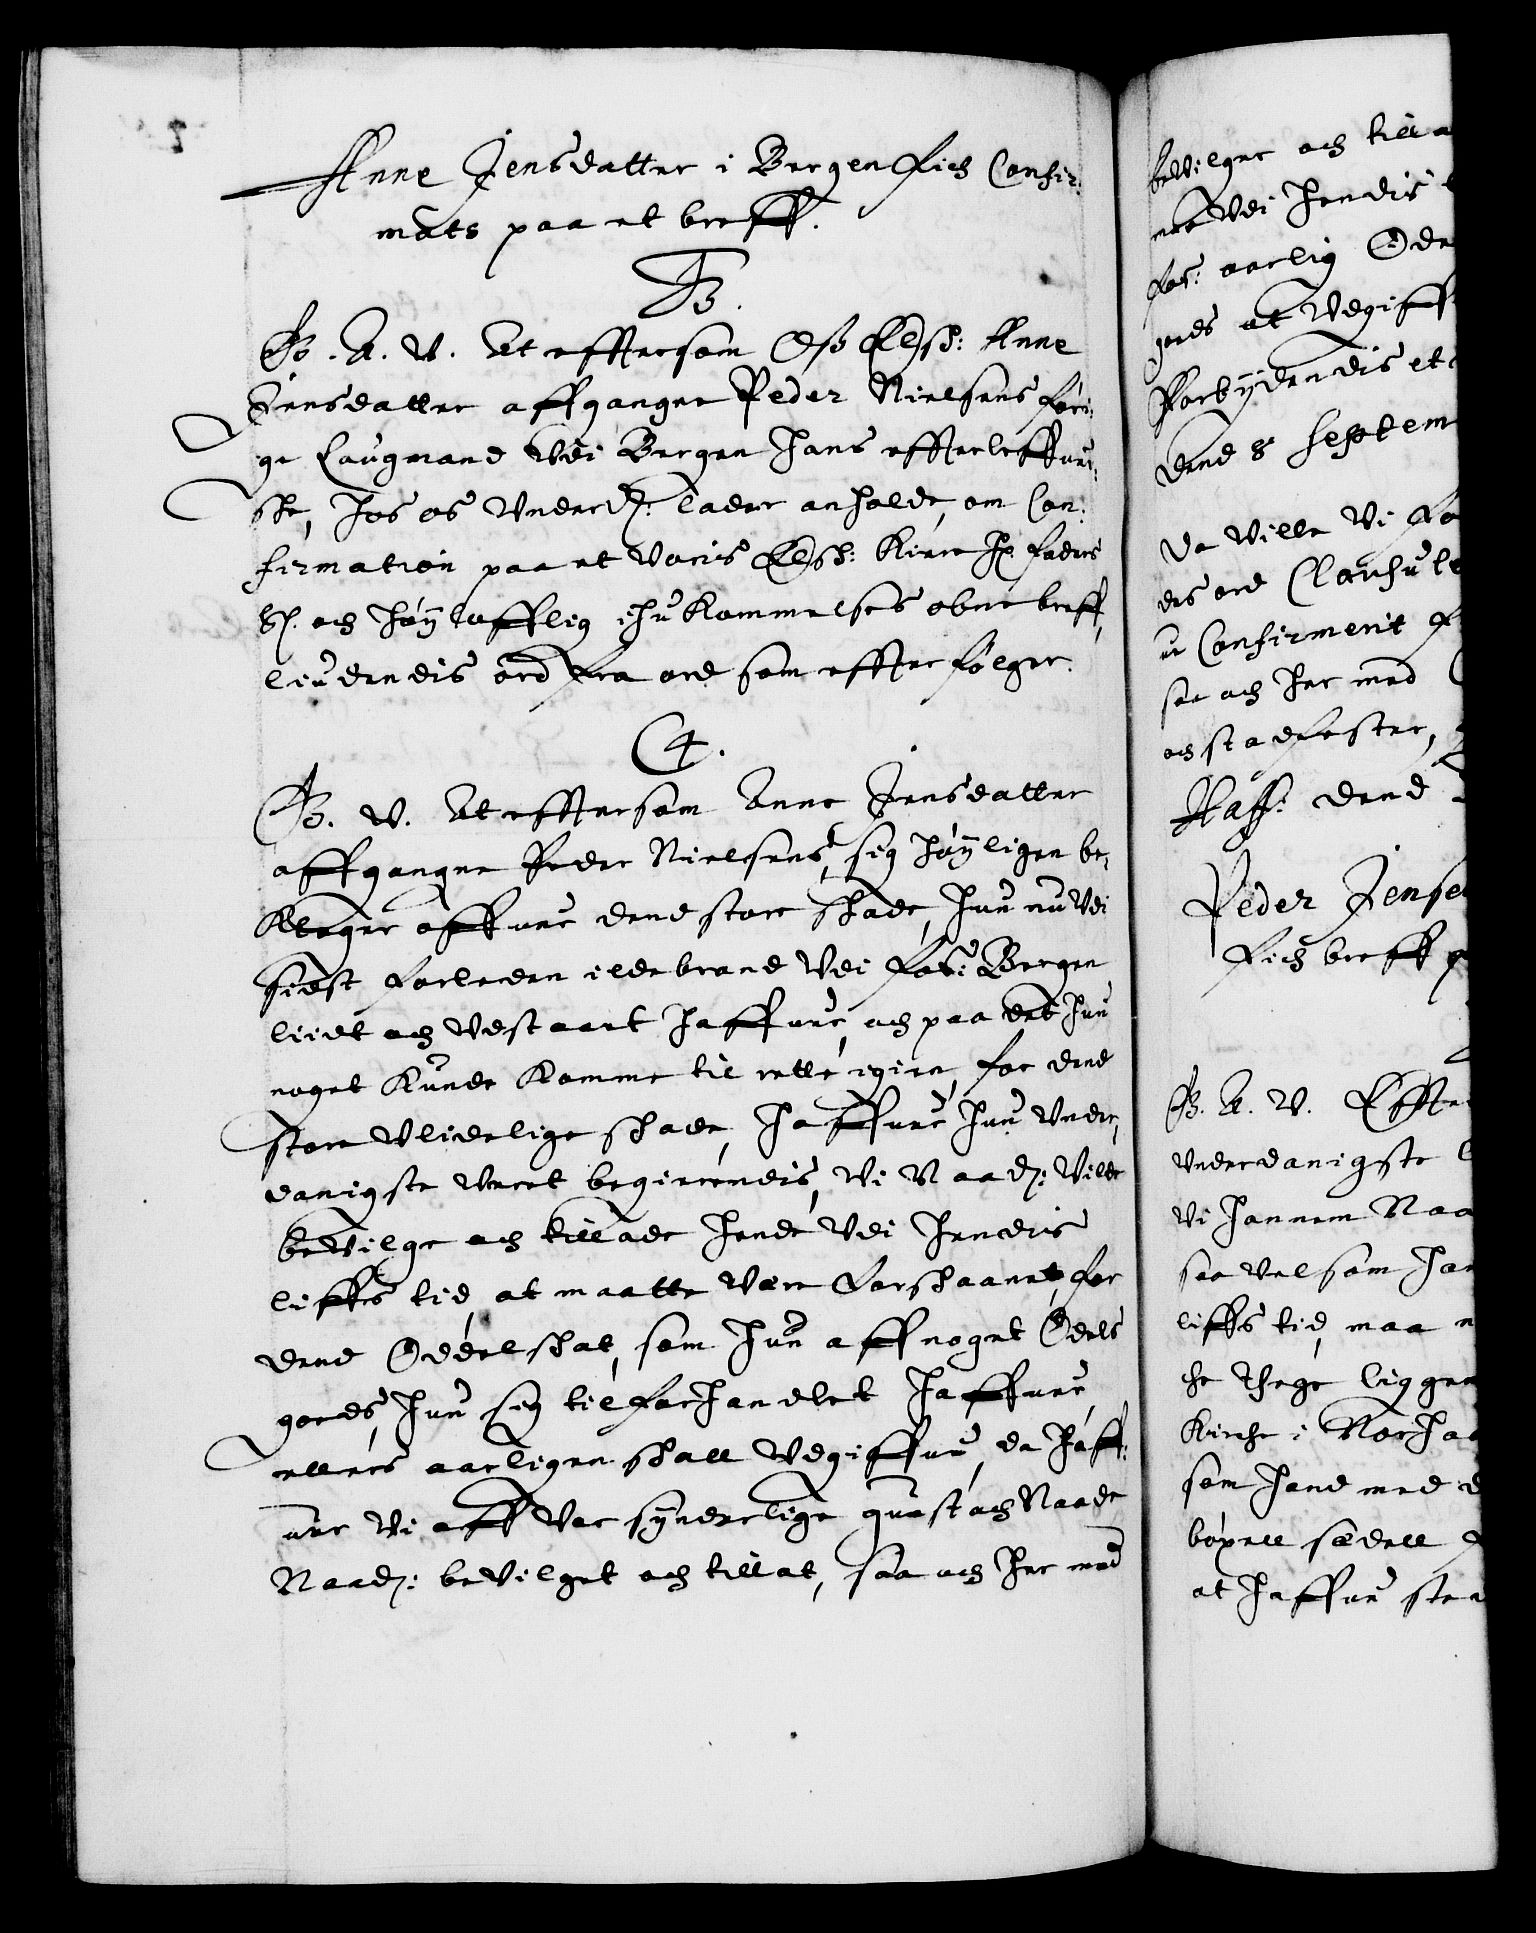 Anne Jensdatter i Bergen fich Confir:
mats paa et breff.
F3.
G. A. V. At efftersom Oss Elsk: Anne
Jensdatter affgangne Peder Nielsens fori:
ge Laugmand Vdi Bergen hans effterleffuer:
ske, hos os Vnderd: lader anholde, om Con:
firmation paa et Voris Elsk: Kiere H. faders
S. och höylofflig ihukommelses obne breff,
liudendis ord fra ord som effter fölger.
C4.
G. V. At efftersom Anne Jensdatter
affgangne Peder Nielsens, sig höyligen be,
klager offuer dend store skade, hun nu Vdi
sidst forleden ildebrand Vdi for: Bergen
liidt och Vdstaaet haffuer, och paa det hun
noget kunde komme til rette igien, for dend
store Vlidelige skade, haffuer hun Vnder,
danigste Veret begierendis, Vi Naad: Vilde
bevilge och tillade hende Vdi hendis
liffs tid, at maatte Være forskaanet, for
dend Oddelskat, som hun aff noget Odels
goeds, hun sig tilforhandlet haffuer,
ellers aarligen skall Vdgiffue, da haff:
uer Vi aff Vor synderlige gunst och Naade
Naad: bevilget och tillat, saa och her med
bevilger och tilla
Vdi hendis
for: aarlig Ode
goeds at Vdgiff
Forbydendis etc
dend 8 Septem
Da Ville Vi fo
des ord Clausule
Confirmerit
saa och her med
och stadfester,
Haff: dend
Peder Jense
fich breff p
G. A. V. Effte
Vnderdanigste
Vi hannem Naa
saa Vel som ha
liffs tid, maa
che thege liggen
Kirche i Norha
som hand med
boxell sædell
at haffue